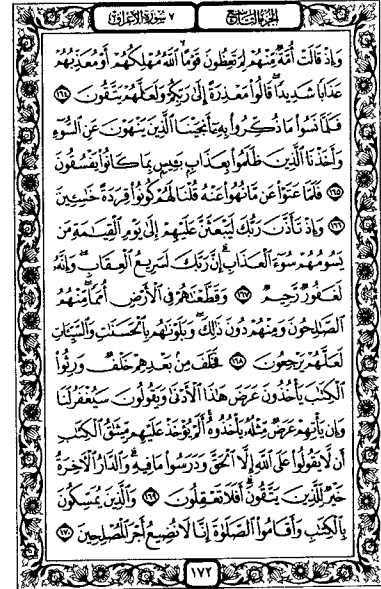 ٧ سورة الأعراف الجزء التاسع
وَإِذْ قَالَتْ أُمَّةٌ مِّنْهُمْ لِمَ تَعِظُونَ قَوْمًا اللَّهُ مُهْلِكُهُمْ أَوْ مُعَذِّبُهُمْ
عَذَابًا شَدِيدًا قَالُوا مَعْذِرَةً إِلَىٰ رَبِّكُمْ وَلَعَلَّهُمْ يَتَّقُونَ ١٦٤
فَلَمَّا نَسُوا مَا ذُكِّرُوا بِهِ أَنجَيْنَا الَّذِينَ يَنْهَوْنَ عَنِ السُّوءِ
وَأَخَذْنَا الَّذِينَ ظَلَمُوا بِعَذَابٍ بَئِيسٍ بِمَا كَانُوا يَفْسُقُونَ
١٦٥ فَلَمَّا عَتَوْا عَن مَّا نُهُوا عَنْهُ قُلْنَا لَهُمْ كُونُوا قِرَدَةً خَاسِئِينَ
١٦٦ وَإِذْ تَأَذَّنَ رَبُّكَ لَيَبْعَثَنَّ عَلَيْهِمْ إِلَىٰ يَوْمِ الْقِيَامَةِ مَن
يَسُومُهُمْ سُوءَ الْعَذَابِ إِنَّ رَبَّكَ لَسَرِيعُ الْعِقَابِ وَإِنَّهُ
لَغَفُورٌ رَّحِيمٌ ١٦٧ وَقَطَّعْنَاهُمْ فِي الْأَرْضِ أُمَمًا مِّنْهُمُ
الصَّالِحُونَ وَمِنْهُمْ دُونَ ذَٰلِكَ وَبَلَوْنَاهُم بِالْحَسَنَاتِ وَالسَّيِّئَاتِ
لَعَلَّهُمْ يَرْجِعُونَ ١٦٨ فَخَلَفَ مِن بَعْدِهِمْ خَلْفٌ وَرِثُوا
الْكِتَٰبَ يَأْخُذُونَ عَرَضَ هَٰذَا الْأَدْنَىٰ وَيَقُولُونَ سَيُغْفَرُ لَنَا
وَإِن يَأْتِهِمْ عَرَضٌ مِّثْلُهُ يَأْخُذُوهُ أَلَمْ يُؤْخَذْ عَلَيْهِم مِّيثَٰقُ الْكِتَٰبِ
أَن لَّا يَقُولُوا عَلَى اللَّهِ إِلَّا الْحَقَّ وَدَرَسُوا مَا فِيهِ وَالدَّارُ الْآخِرَةُ
خَيْرٌ لِّلَّذِينَ يَتَّقُونَ أَفَلَا تَعْقِلُونَ ١٦٩ وَالَّذِينَ يُمَسِّكُونَ
بِالْكِتَٰبِ وَأَقَامُوا الصَّلَوٰةَ إِنَّا لَا نُضِيعُ أَجْرَ الْمُصْلِحِينَ ١٧٠
١٧٢